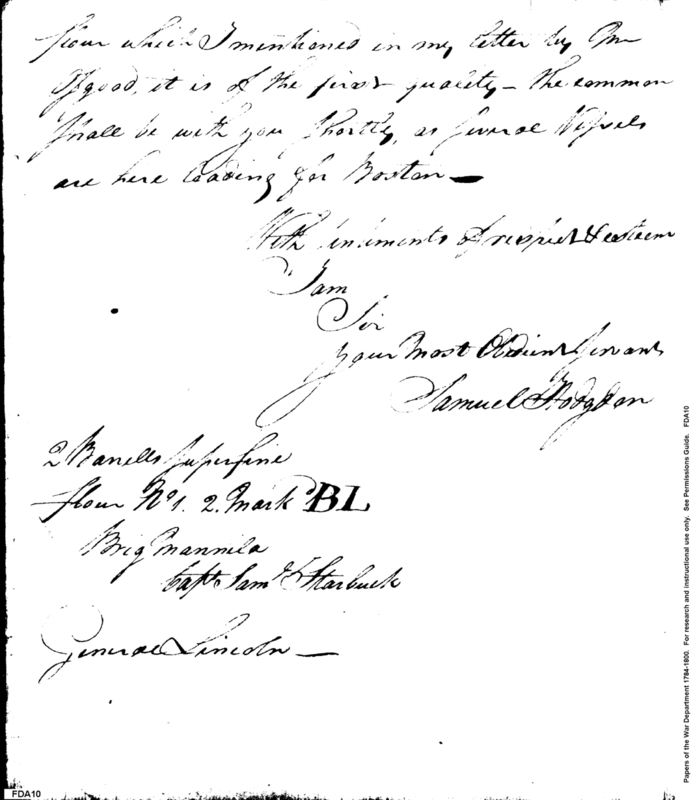 flour which I mentioned in my letter by Mr
Osgood, it is of the first quality – the common
shall be with you shortly, as several Vessels
are here loading for Boston —
With sentiments of respect & esteem
I am
Sir
your most Obedient Servant
Samuel Hodgdon
2 Barrells superfine
flour No 1. 2. Mark BL
Brig Mannila
Capt Saml Starbuck
General Lincoln —
FDA10
Papers of the War Department 1784-1800. For research and instructional use only. See Permissions Guide. FDA10